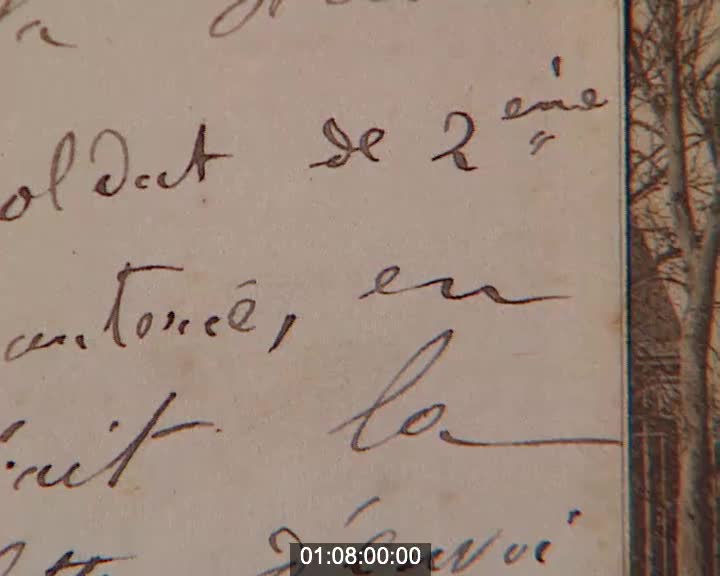 oldat de 2 ème
antonné, en
rit la
d'envoi
01:08:00:00